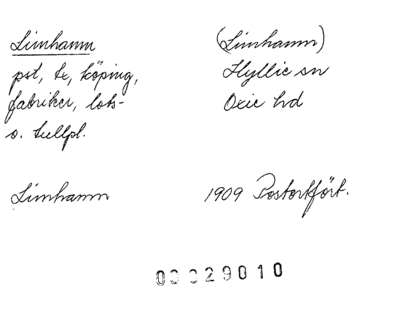 Limhamn (Limhamn)
pst, te, köping, Hyllie sn
fabriker, lots- Oxie hd
o. tullpl.
Limhamn 1909 Postortfört.
00029010